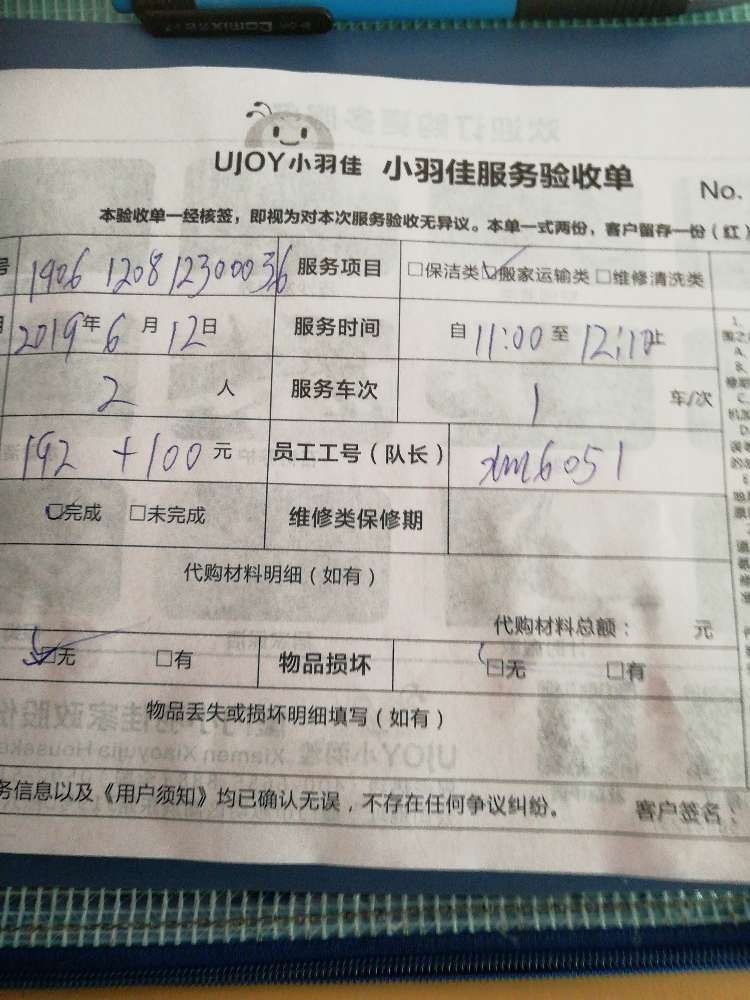 Comix
UJOY小羽佳 小羽佳服务验收单
No.
本验收单一经核签，即视为对本次服务验收无异议。本单一式两份，客户留存一份（红）
号 1906 1208 12300036 服务项目 □保洁类□搬家运输类□维修清洗类
2019年6月12日 服务时间 自11:00至12:10止
2人 服务车次 1 车/次
192+100元 员工工号（队长） xm6051
□完成 □未完成 维修类保修期
代购材料明细（如有）
代购材料总额： 元
□无 □有 物品损坏 □无 □有
物品丢失或损坏明细填写（如有）
务信息以及《用户须知》均已确认无误，不存在任何争议纠纷。 客户签名：